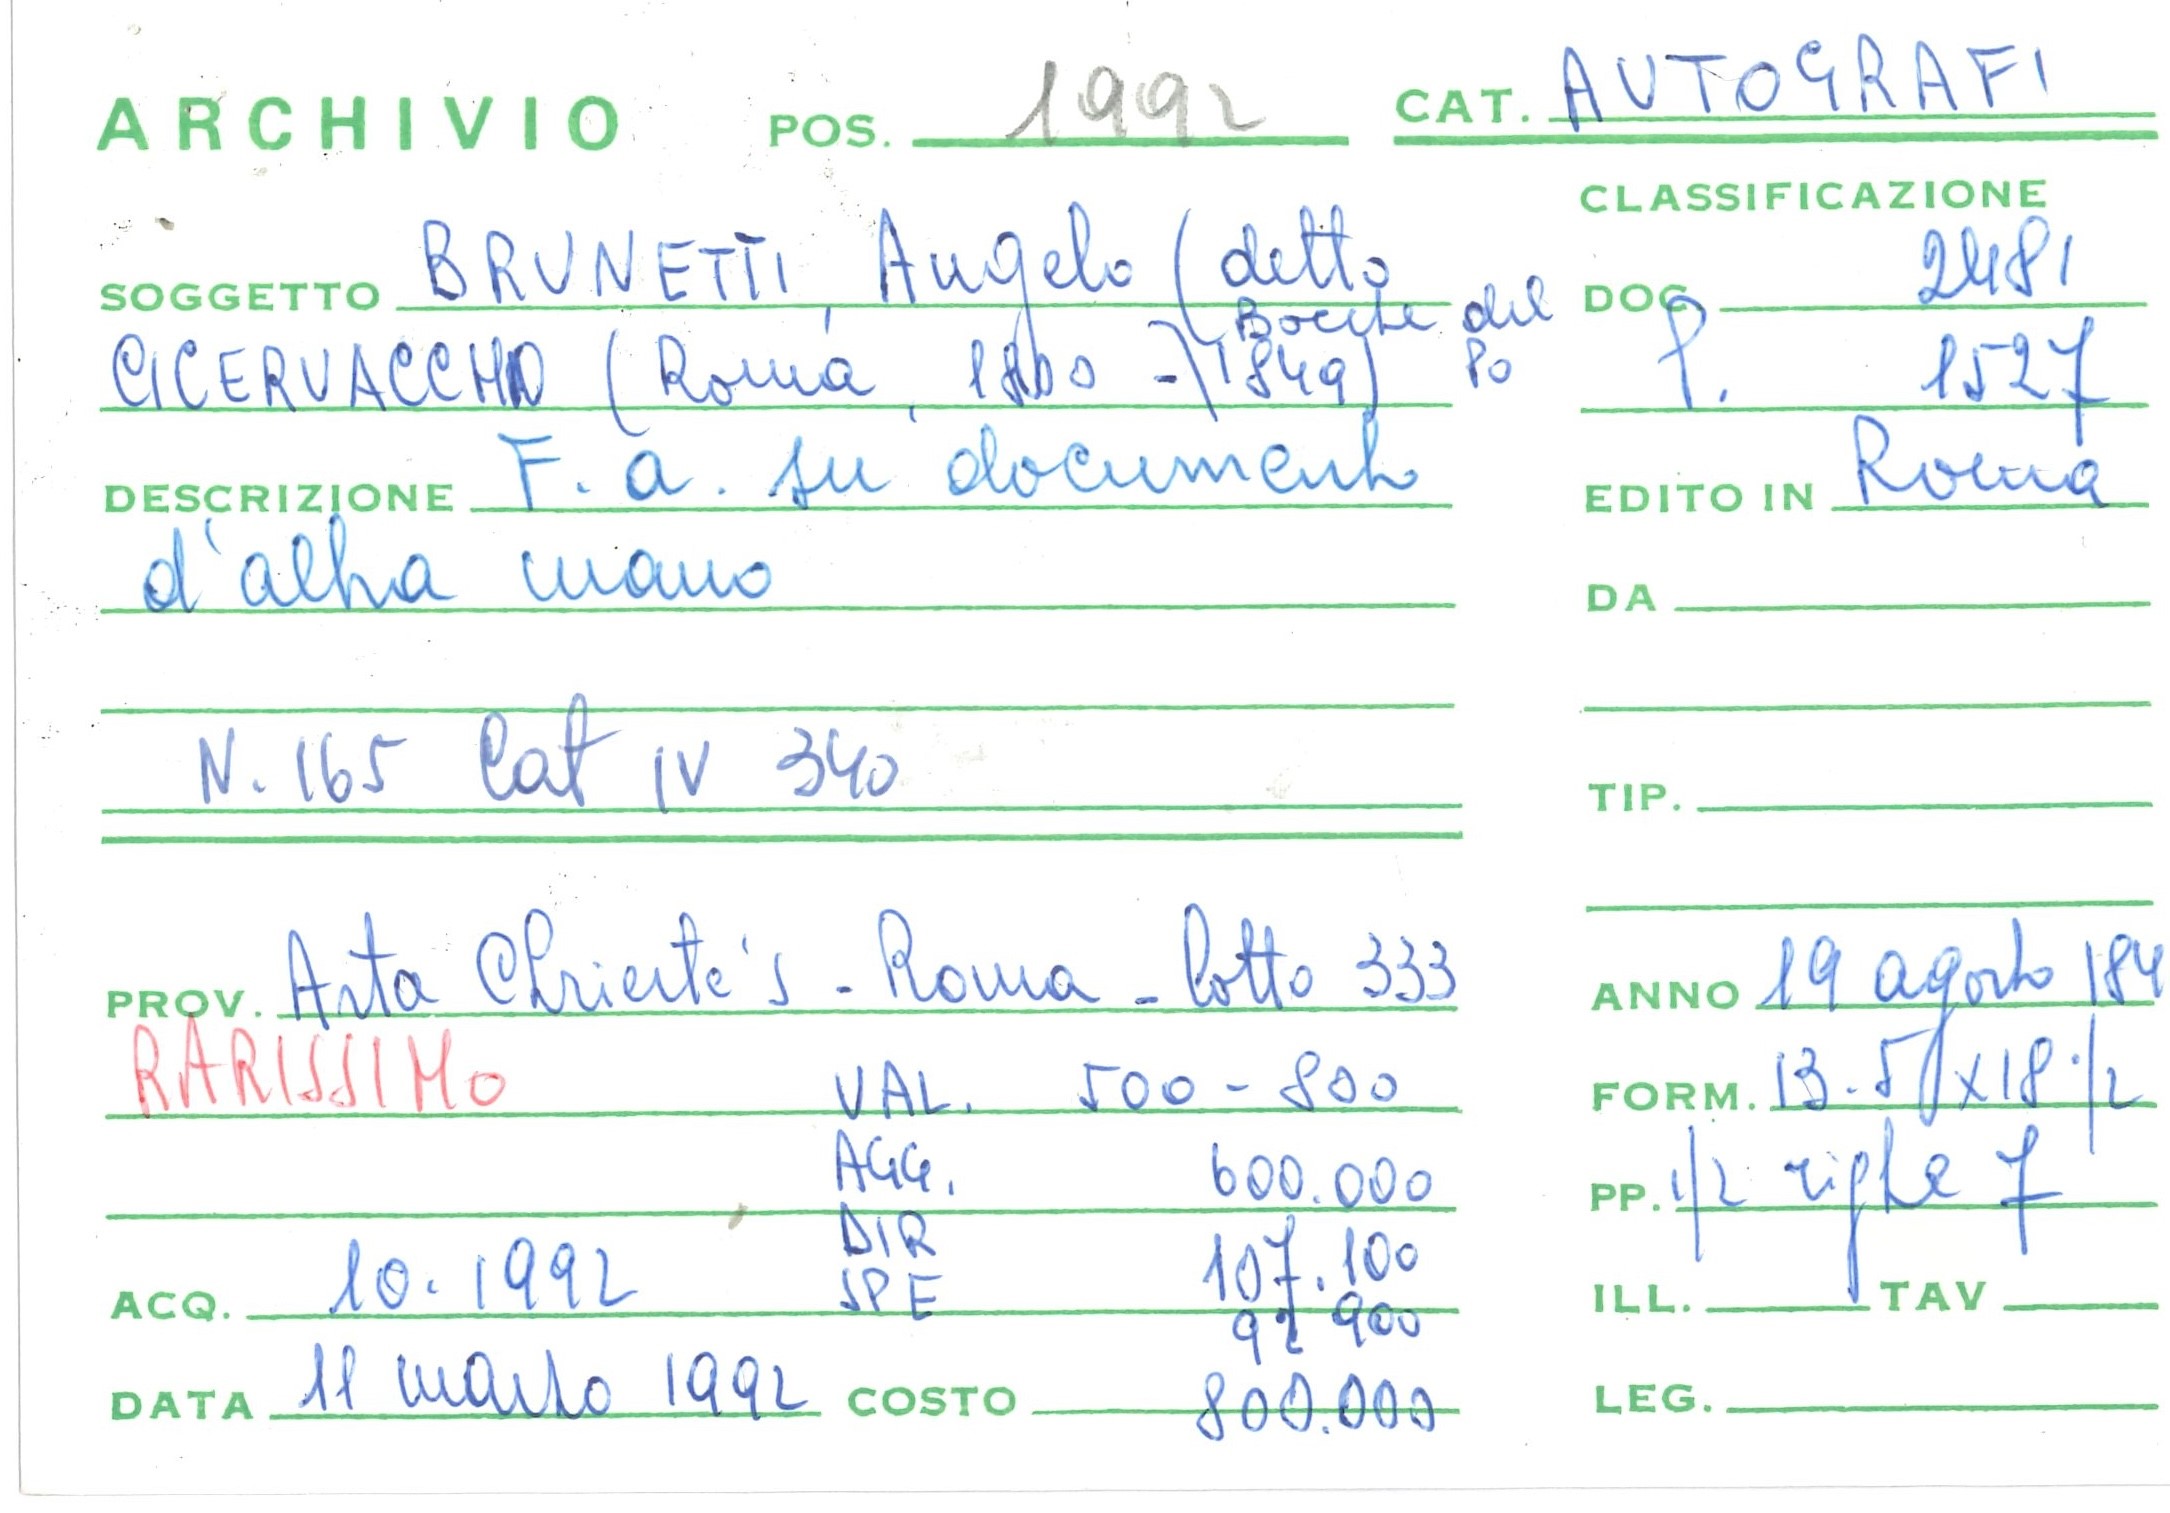 ARCHIVIO POS. 1992 CAT. AUTOGRAFI
CLASSIFICAZIONE
SOGGETTO BRUNETTI Angelo (detto
DOC 2481
CICERVACCHIO (Roma, 1800 - Bocche del Po 1849)
P. 1527
DESCRIZIONE F. a. su documento
EDITO IN Roma
d'altra mano
DA
N. 165 Cat IV 340
TIP.
PROV. Asta Chrieste's - Roma - lotto 333
ANNO 19 agosto 184
RARISSIMO
VAL. 500 - 800
FORM. 13.5 x 18 1/2
AGG. 600.000
PP. 1/2 righe 7
DIR 107.100
ACQ. 10.1992
SPE 92 900
ILL. TAV
DATA 11 marzo 1992 COSTO 800.000
LEG.